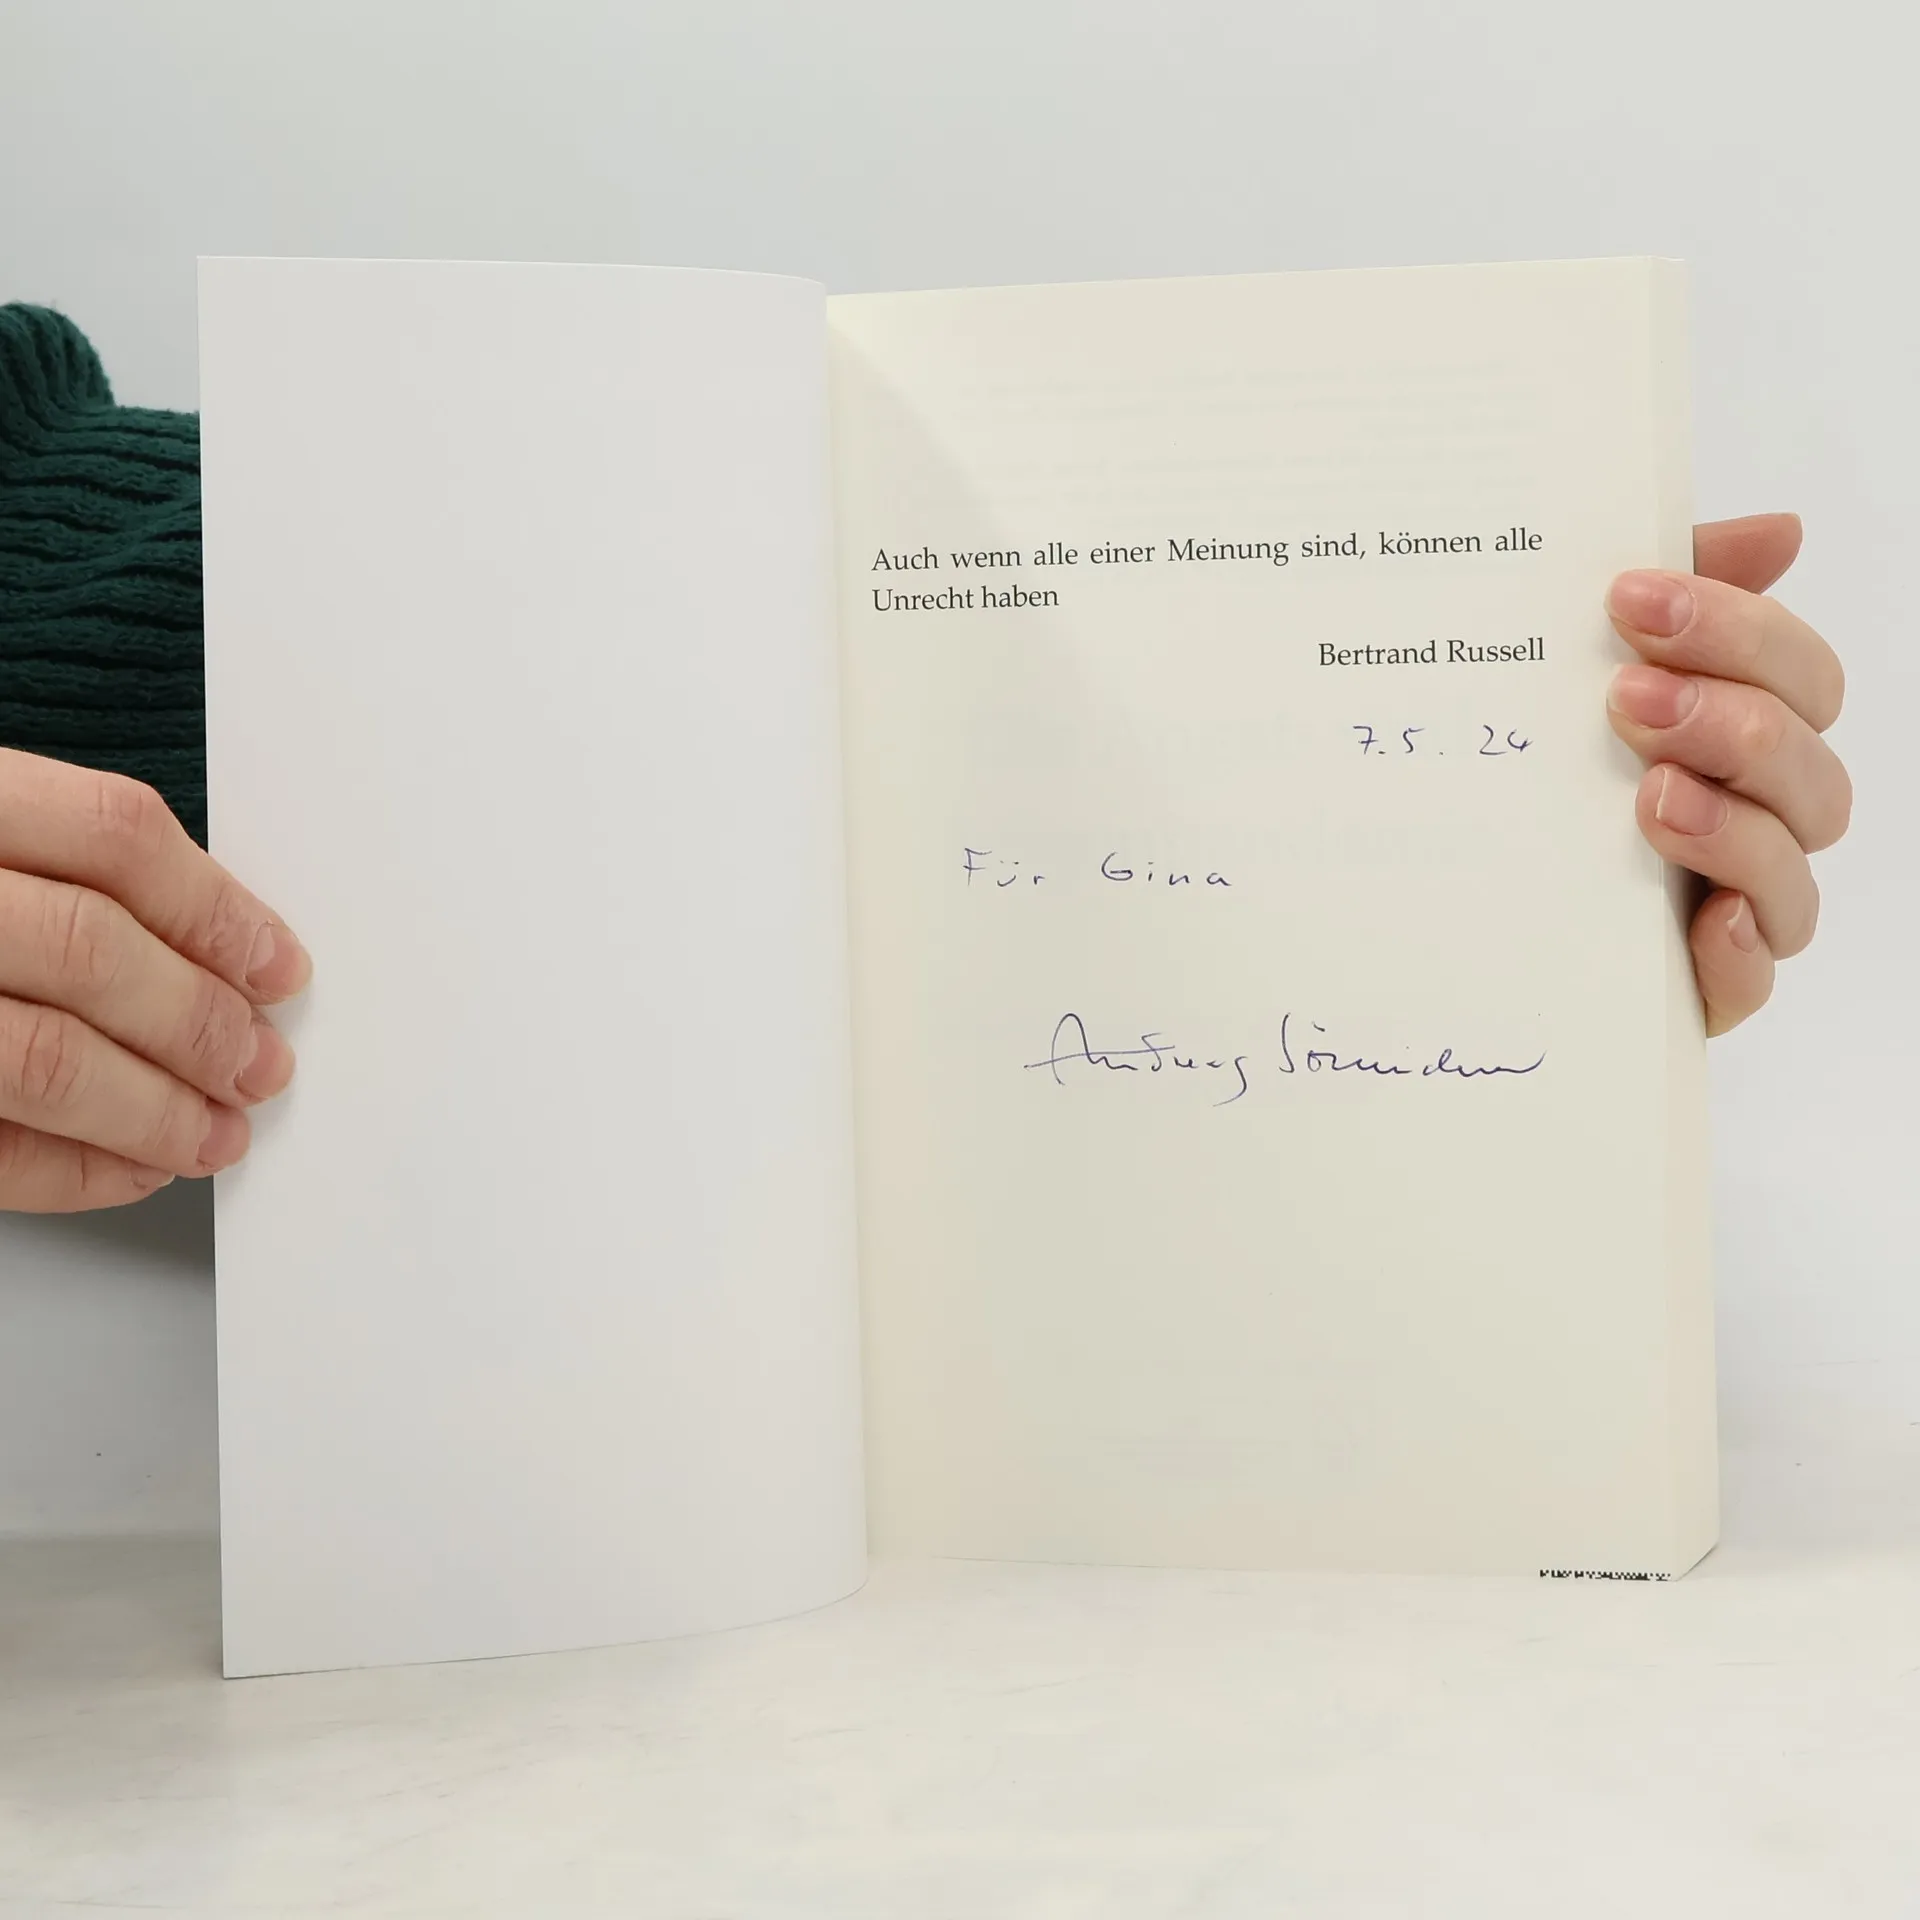 Auch wenn alle einer Meinung sind, können alle
Unrecht haben
Bertrand Russell
7.5. 24
Für Gina